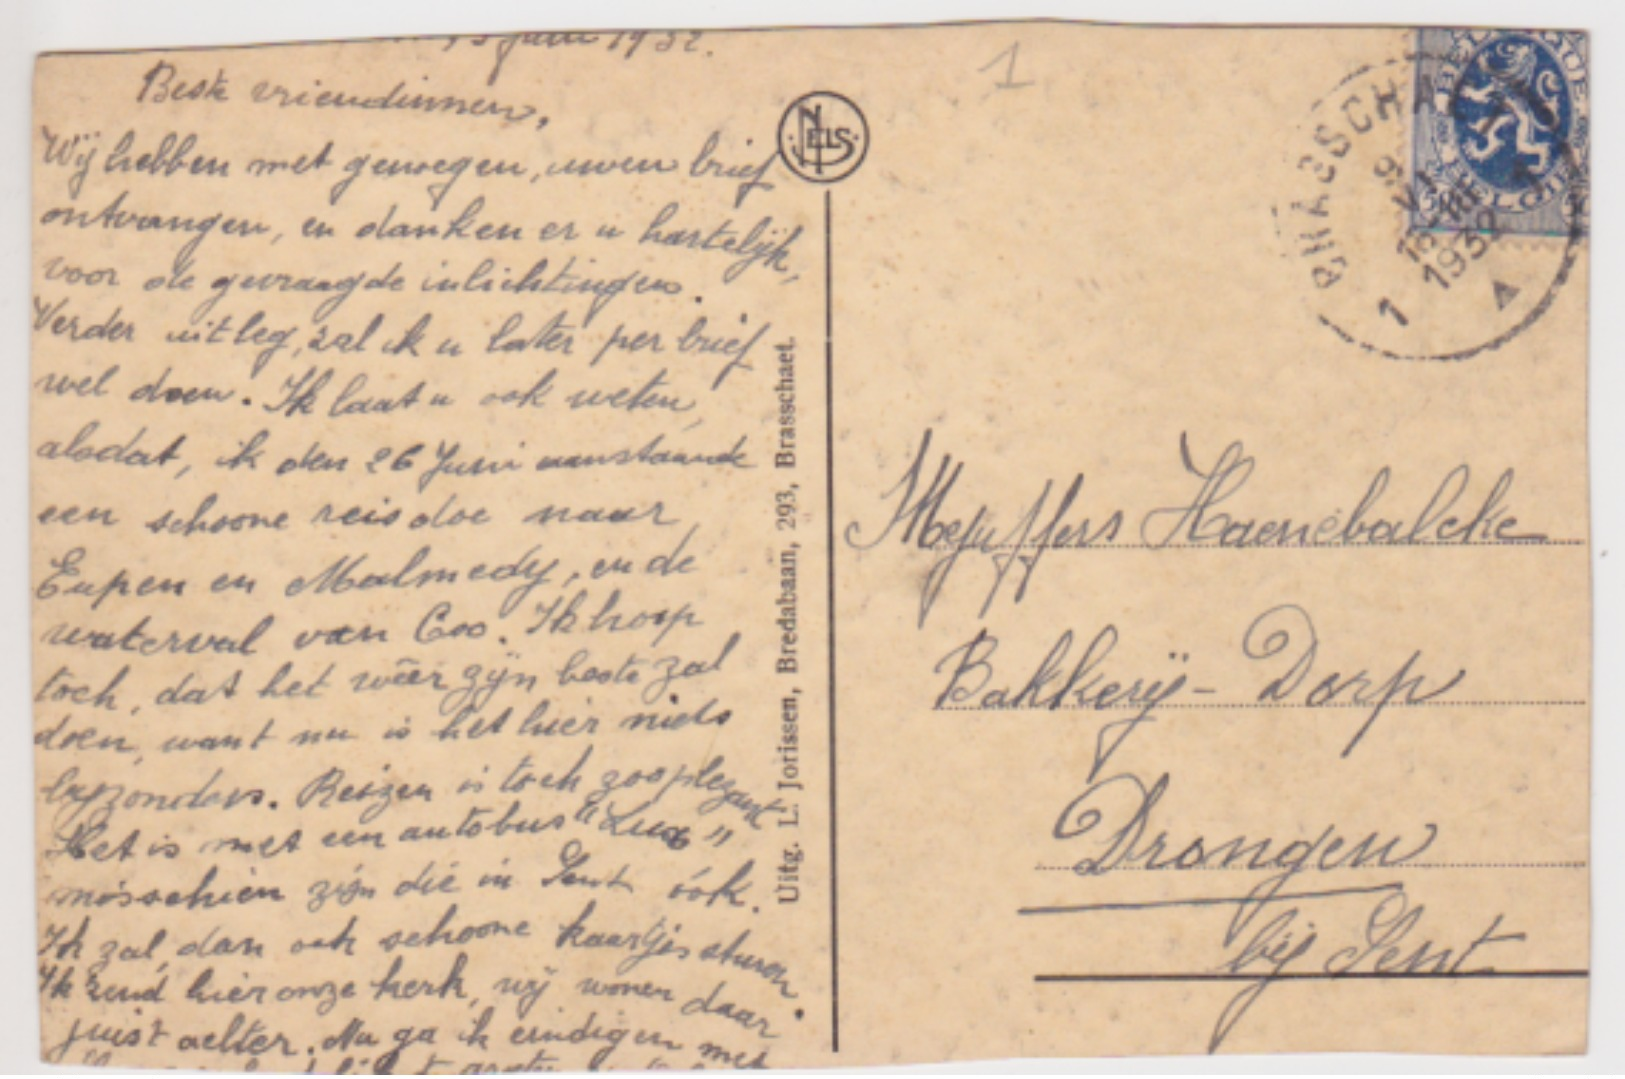 Juni 1932.
Beste vriendinnen,
Wij hebben met genoegen, uwen brief
ontvangen, en danken er u hartelijk,
voor de gevraagde inlichtingen.
Verder uitleg, zal ik u later per brief
wel doen. Ik laat u ook weten,
alsdat, ik den 26 Juni aanstaande
een schoone reis doe naar
Eupen en Malmedy, en de
waterval van Coo. Ik hoop
toch, dat het wêer zijn beste zal
doen, want nu is het hier niets
byzonders. Reizen is toch zoo plezant
Het is met een autobus "Lux"
misschien zijn die in Gent óók.
Ik zal, dan ook schoone kaartjes sturen.
Ik zend hier onze kerk, wij wonen daar
juist achter. Nu ga ik eindigen met
NELS
Uitg. L. Jorissen, Bredabaan, 293, Brasschaet.
1
BELGIQUE
BELGIË
BRASSCHA
1932
1
Mejuffers Haenebalcke
Bakkerij - Dorp
Drongen
bij Gent